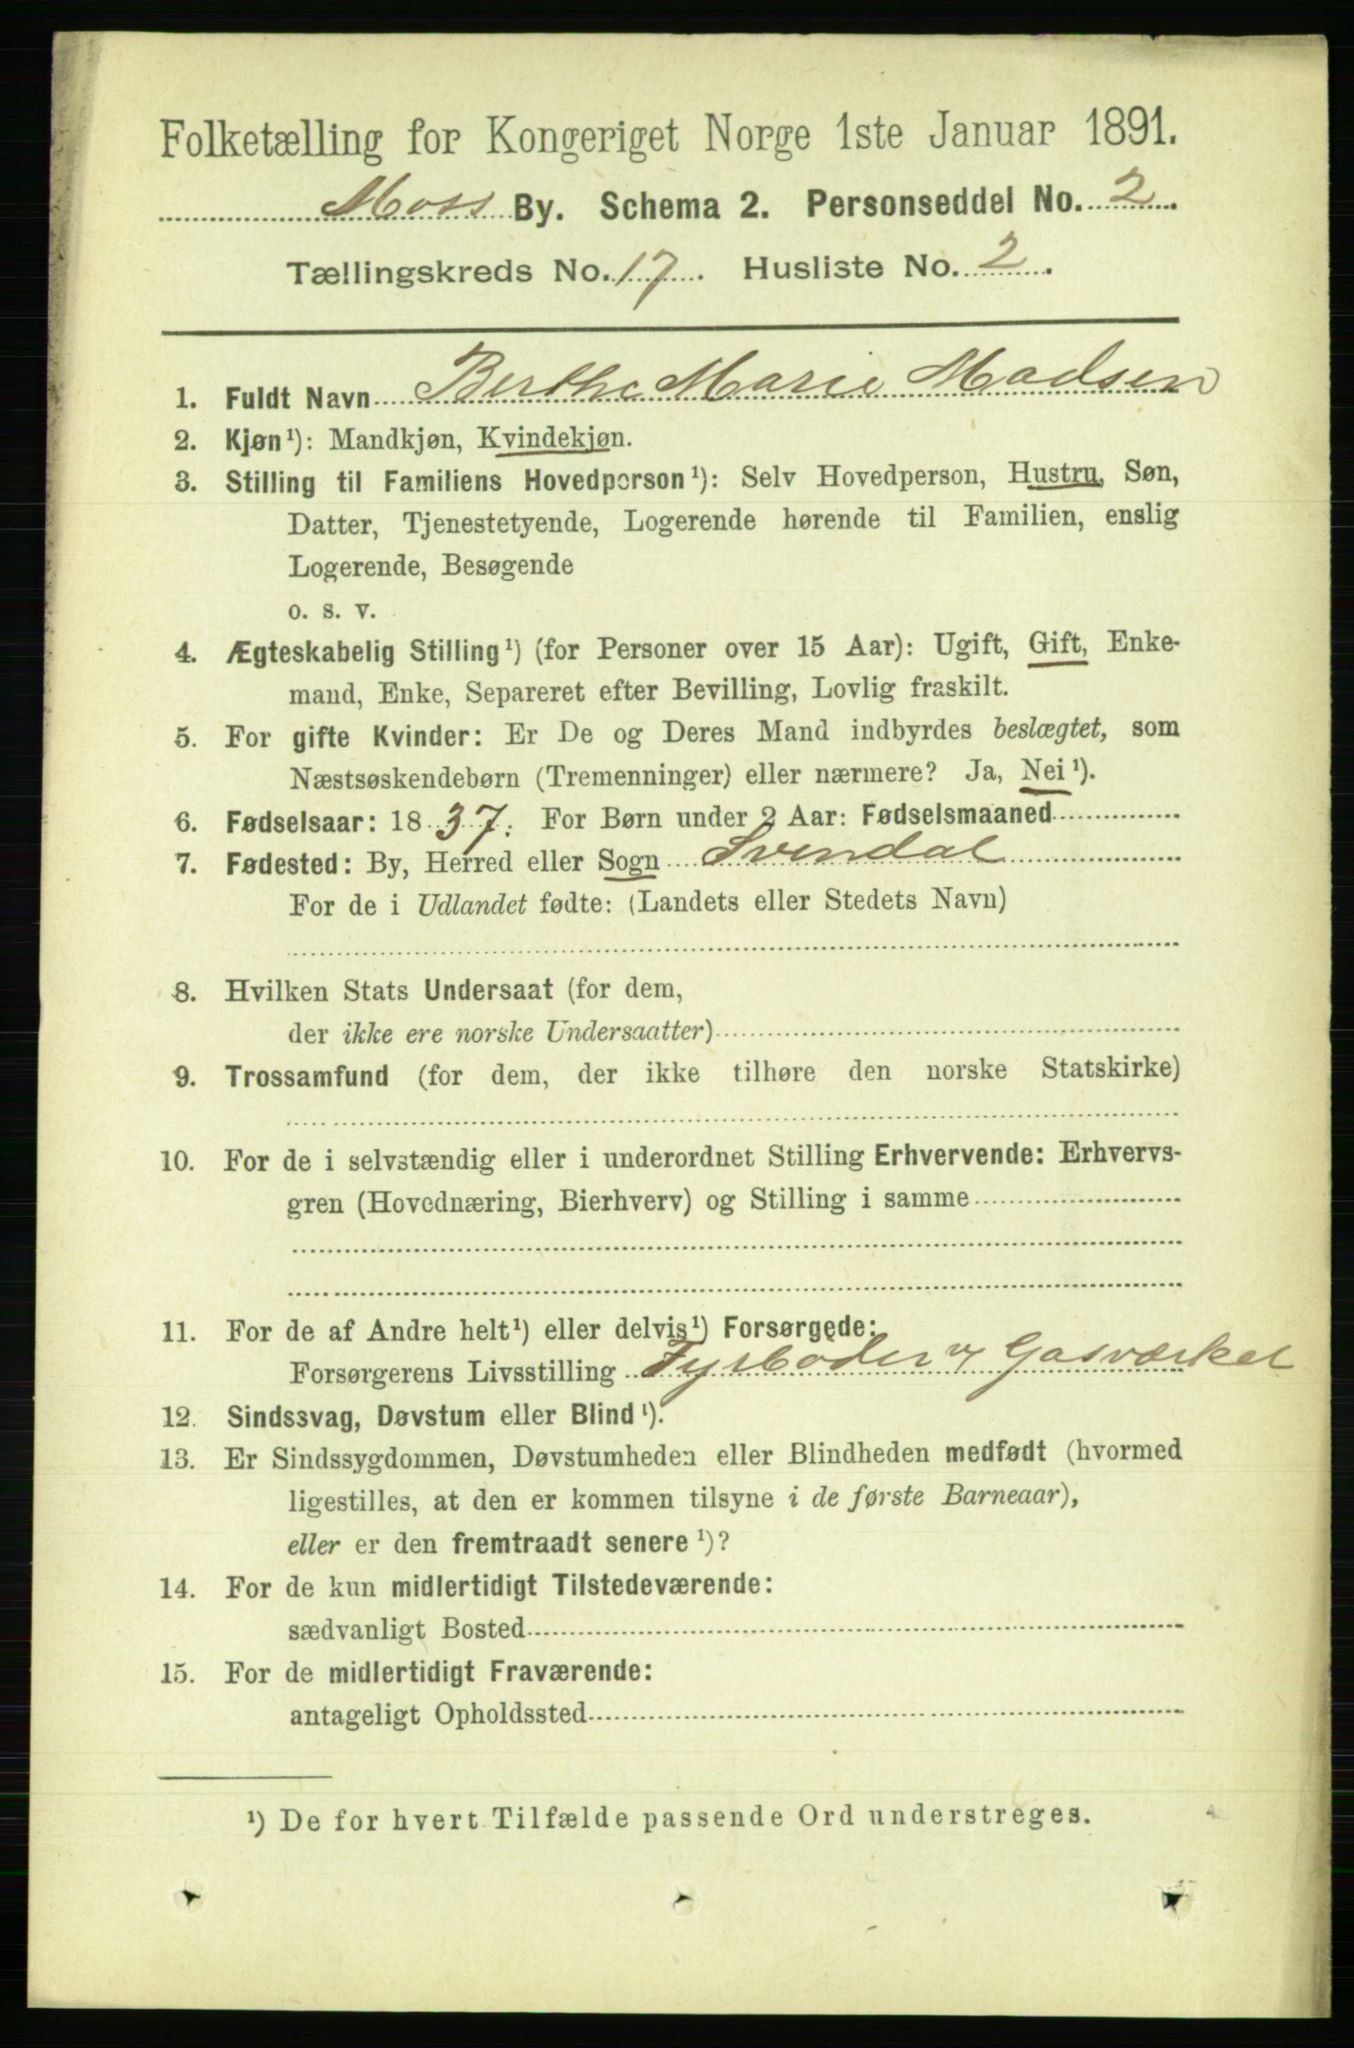 Folketælling for Kongeriget Norge 1ste Januar 1891.
Moss By. Schema 2. Personseddel No. 2.
Tællingskreds No. 17. Husliste No. 2.
1. Fuldt Navn Berthe Marie Madsen
2. Kjøn¹): Mandkjøn, Kvindekjøn.
3. Stilling til Familiens Hovedperson¹): Selv Hovedperson, Hustru, Søn,
Datter, Tjenestetyende, Logerende hørende til Familien, enslig
Logerende, Besøgende
o. s. v.
4. Ægteskabelig Stilling¹) (for Personer over 15 Aar): Ugift, Gift, Enke-
mand, Enke, Separeret efter Bevilling, Lovlig fraskilt.
5. For gifte Kvinder: Er De og Deres Mand indbyrdes beslægtet, som
Næstsøskendebørn (Tremenninger) eller nærmere? Ja, Nei¹).
6. Fødselsaar: 1837. For Børn under 2 Aar: Fødselsmaaned
7. Fødested: By, Herred eller Sogn Svendal
For de i Udlandet fødte: (Landets eller Stedets Navn)
8. Hvilken Stats Undersaat (for dem,
der ikke ere norske Undersaatter)
9. Trossamfund (for dem, der ikke tilhøre den norske Statskirke)
10. For de i selvstændig eller i underordnet Stilling Erhvervende: Erhvervs-
gren (Hovednæring, Bierhverv) og Stilling i samme
11. For de af Andre helt¹) eller delvis¹) Forsørgede:
Forsørgerens Livsstilling Fyrbøder v Gasværket
12. Sindssvag, Døvstum eller Blind¹).
13. Er Sindssygdommen, Døvstumheden eller Blindheden medfødt (hvormed
ligestilles, at den er kommen tilsyne i de første Barneaar),
eller er den fremtraadt senere¹)?
14. For de kun midlertidigt Tilstedeværende:
sædvanligt Bosted
15. For de midlertidigt Fraværende:
antageligt Opholdssted
¹) De for hvert Tilfælde passende Ord understreges.